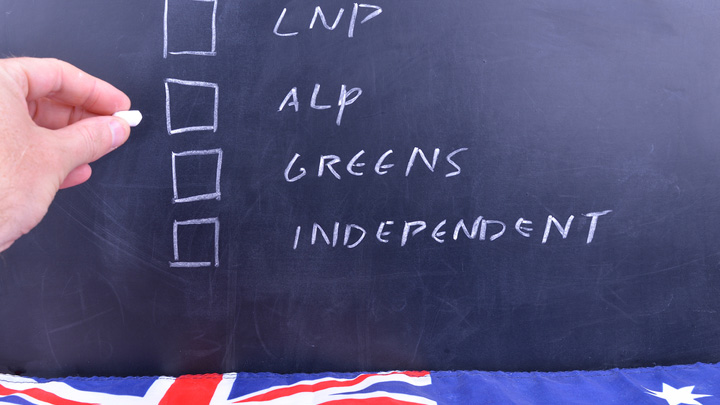 LNP
ALP
GREENS
INDEPENDENT